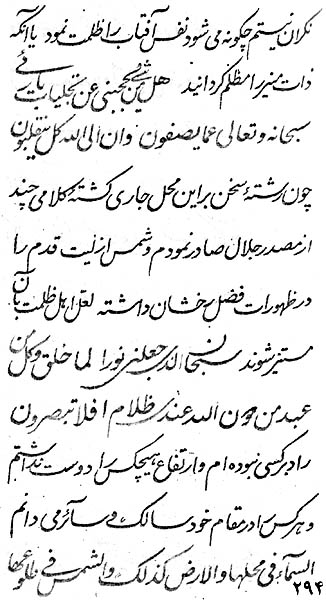 نکران نیستم چگونه می شود نفس آفتاب را ظلمت نمود یا آنکه
ذات منیر را مظلم گردانید هل من شیئ یحجبنی عن تجلیات بارئی
سبحانه و تعالی عما یصفون و ان الی الله کل منقلبون
چون رشتهٔ سخن بر این محل جاری گشته کلامی چند
از مصدر جلال صادر نمودم و شمس ازلیت قدم را
در ظهورات فضل رخشان داشته لعل اهل ظلمت بآن
مستنیر شوند سبحان الذی جعلنی نورا لما خلق و کل من
عبد من دون الله عندی ظلام افلا تبصرون
راد بر کسی نبوده ام و ارتفاع هیچکس را دوست نداشتم
و هر کس را در مقام خود سالک و سائر می دانم
السمآء فی محلها و الارض کذلک و الشمس فی طلوعها
۲۹۴